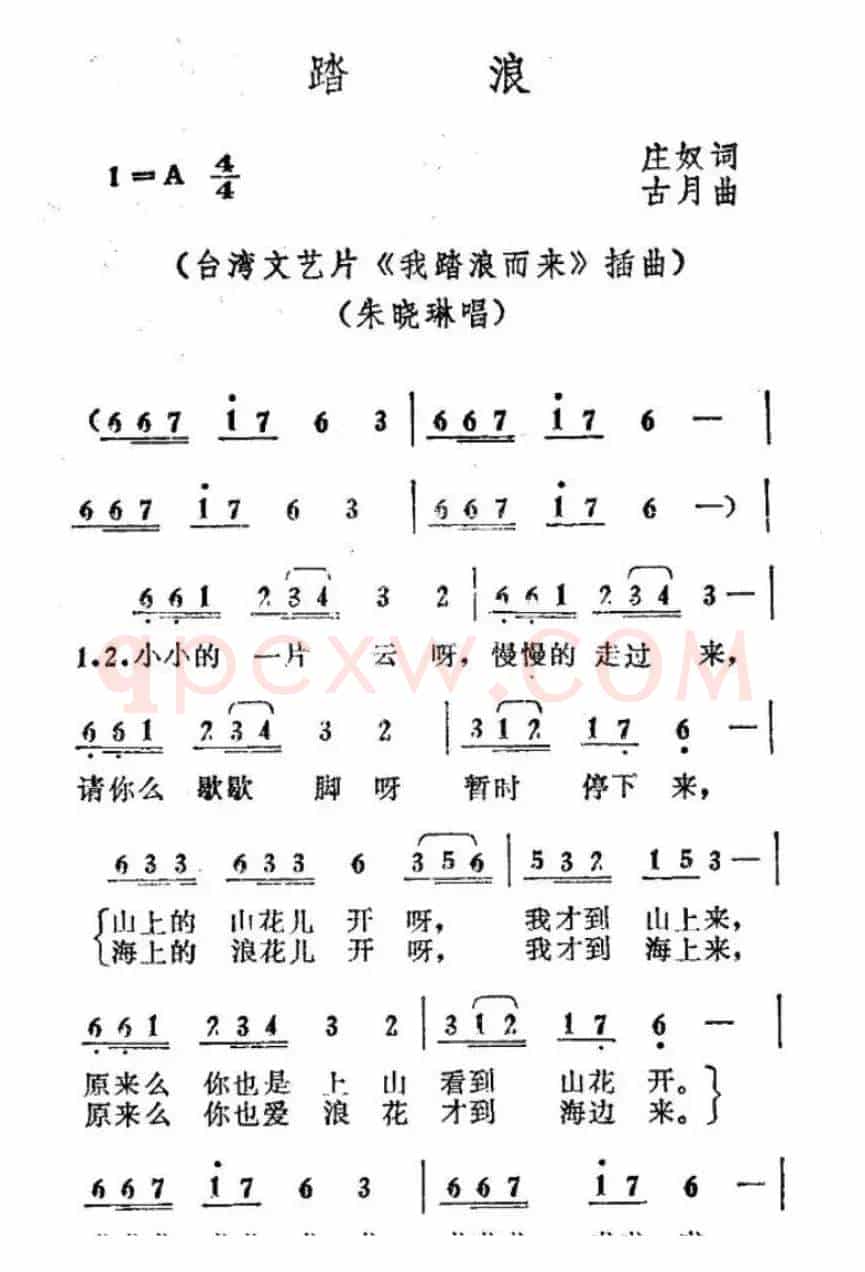 踏 浪
1=A 4/4
庄奴词
古月曲
(台湾文艺片《我踏浪而来》插曲)
(朱晓琳唱)
(6 6 7 i 7 6 3 | 6 6 7 i 7 6 — |
6 6 7 i 7 6 3 | 6 6 7 i 7 6 —) |
6 6 1 2 3 4 3 2 | 6 6 1 2 3 4 3 — |
1.2.小小的 一片 云 呀, 慢慢的 走过 来,
6 6 1 2 3 4 3 2 | 3 1 2 1 7 6 — |
请你么 歇歇 脚 呀 暂时 停下 来,
6 3 3 6 3 3 6 3 5 6 | 5 3 2 1 5 3 — |
山上的 山花儿 开 呀, 我才到 山上来,
海上的 浪花儿 开 呀, 我才到 海上来,
6 6 1 2 3 4 3 2 | 3 1 2 1 7 6 — |
原来么 你也是 上 山 看到 山花 开。
原来么 你也爱 浪 花 才到 海边 来。
6 6 7 i 7 6 3 | 6 6 7 i 7 6 — |
qpcxw.com